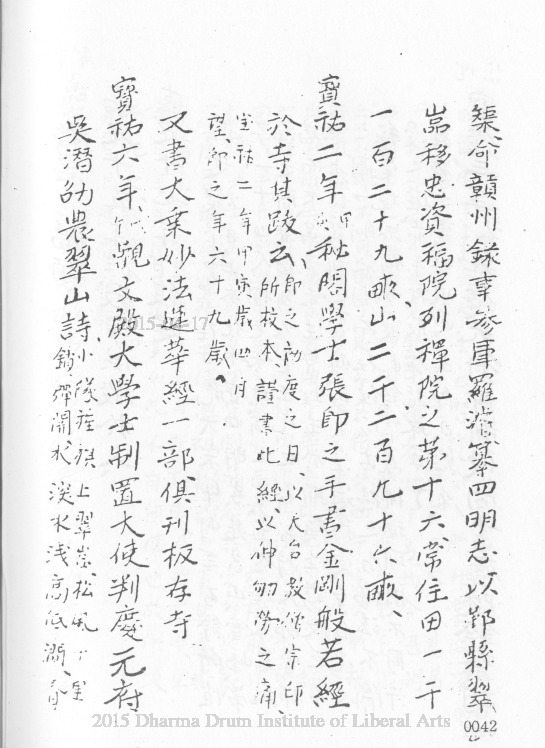 槼命贛州錄事參軍羅濬纂四明志以鄞縣翠
嵓移忠資福院列禪院之第十六常住田一千
一百二十九畝、山二千二百九十六畝、
寶祐二年甲寅秘閣學士張即之手書金剛般若經
於寺其跋云、即之初度之日、以天台教僧宗印
所校本、謹書此經、以伸劬勞之痛、
宝祐二年甲寅歲四月
望、即之年六十九歲。
又書大乘妙法蓮華經一部、俱刊板存寺
寶祐六年、觀文殿大學士制置大使判慶元府
吳潛劝農翠山詩、小隊旌旗上翠嵓、松風十里
鎖彈開、水淡水浅高低澗、
2015-12-17
2015 Dharma Drum Institute of Liberal Arts
0042